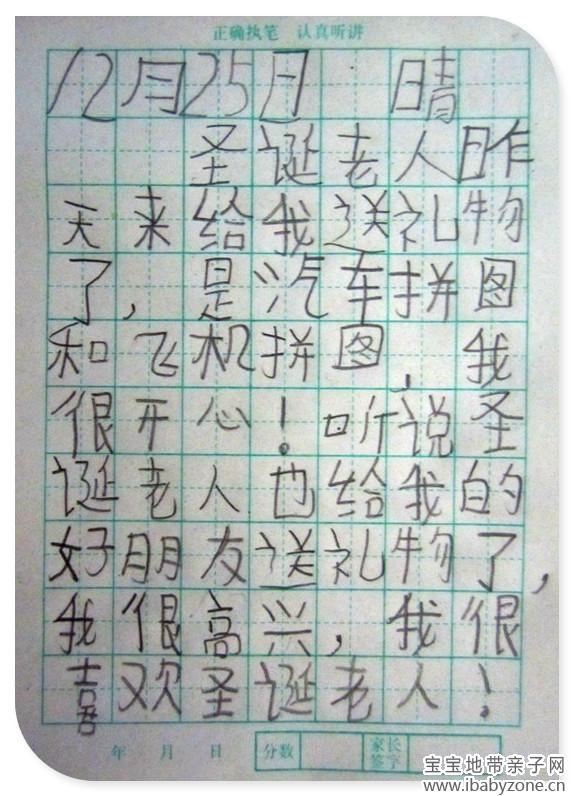 正确执笔 认真听讲
12月25日 晴
圣诞老人昨
天来给我送礼物
了,是汽车拼图
和飞机拼图,我
很开心!听说圣
诞老人也给我的
好朋友送礼物了,
我很高兴,我很
喜欢圣诞老人!
年 月 日 分数 家长签字
宝宝地带亲子网
www.ibabyzone.cn